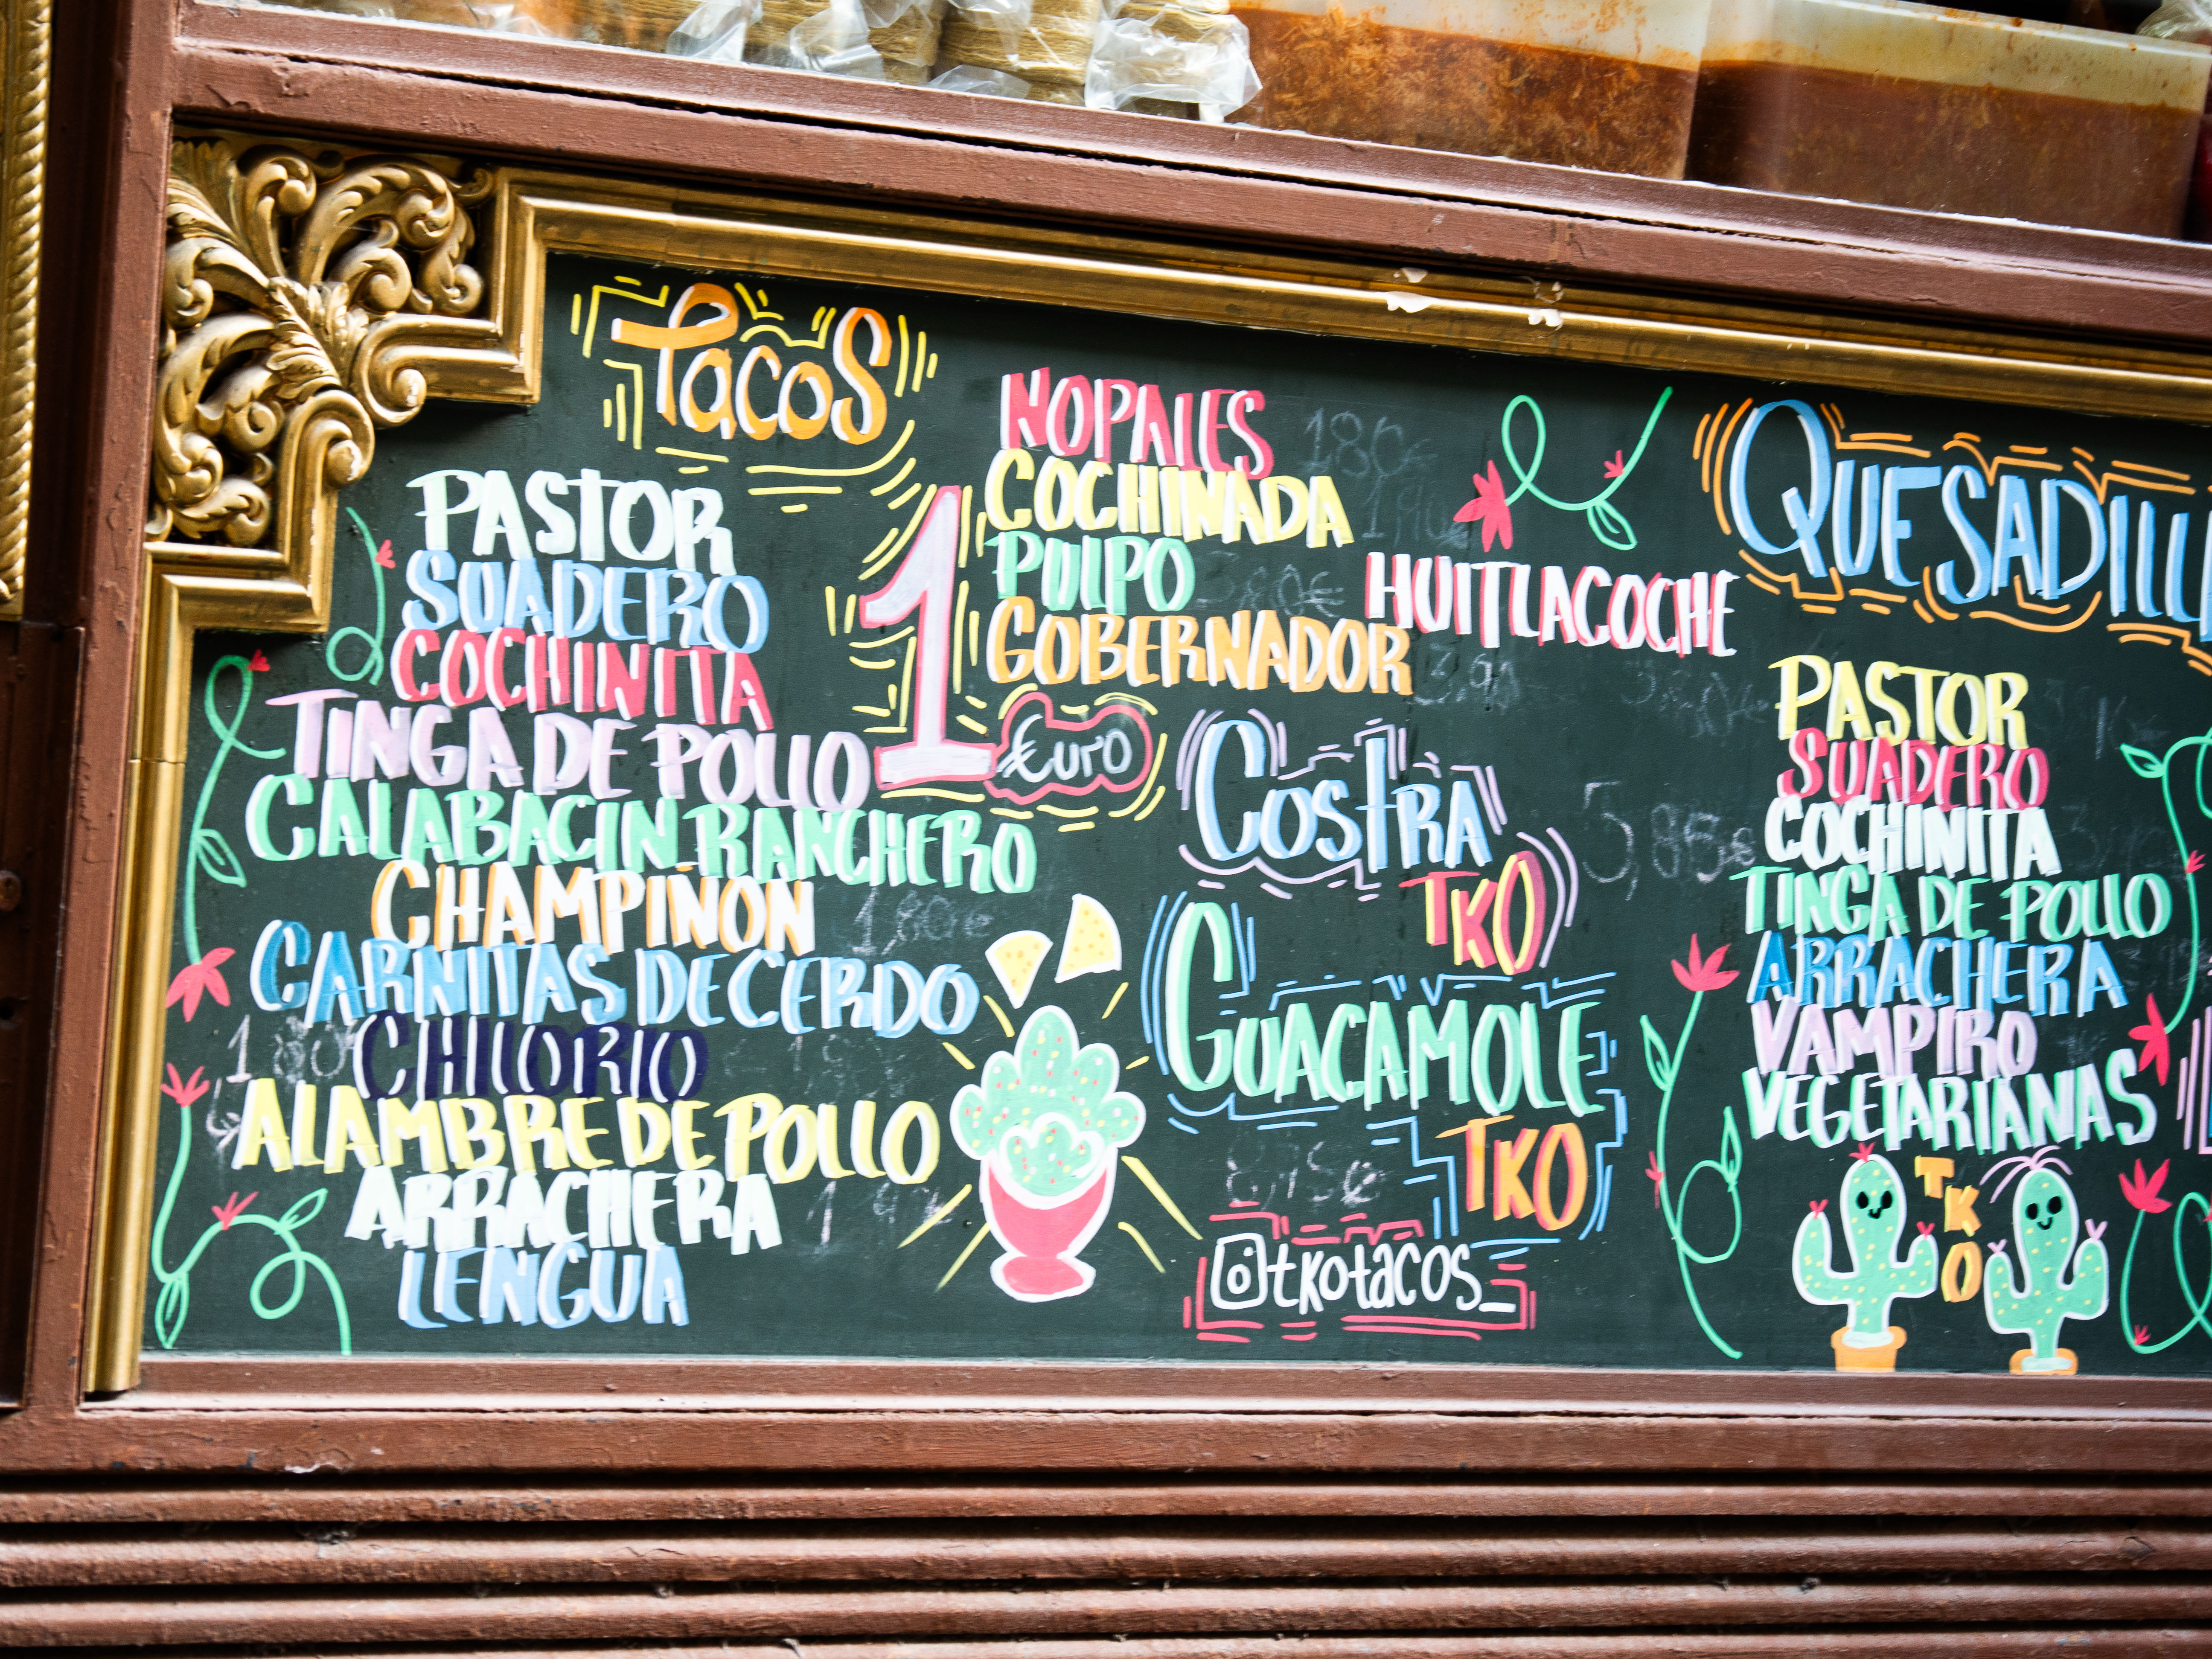 Tacos
PASTOR
SUADERO
COCHINITA
TINGA DE POLLO
CALABACIN RANCHERO
1
Euro
CHAMPIÑON
1,80€
CARNITAS DE CERDO
CHILORIO
ALAMBRE DE POLLO
ARRACHERA
LENGUA
NOPALES
1,80€
COCHINADA
1,90€
PULPO
GOBERNADOR
HUITLACOCHE
COSTRA
TKO
5,85€
GUACAMOLE
TKO
@tkotacos_
QUESADILL
PASTOR
SUADERO
COCHINITA
TINGA DE POLLO
ARRACHERA
VAMPIRO
VEGETARIANAS
TKO